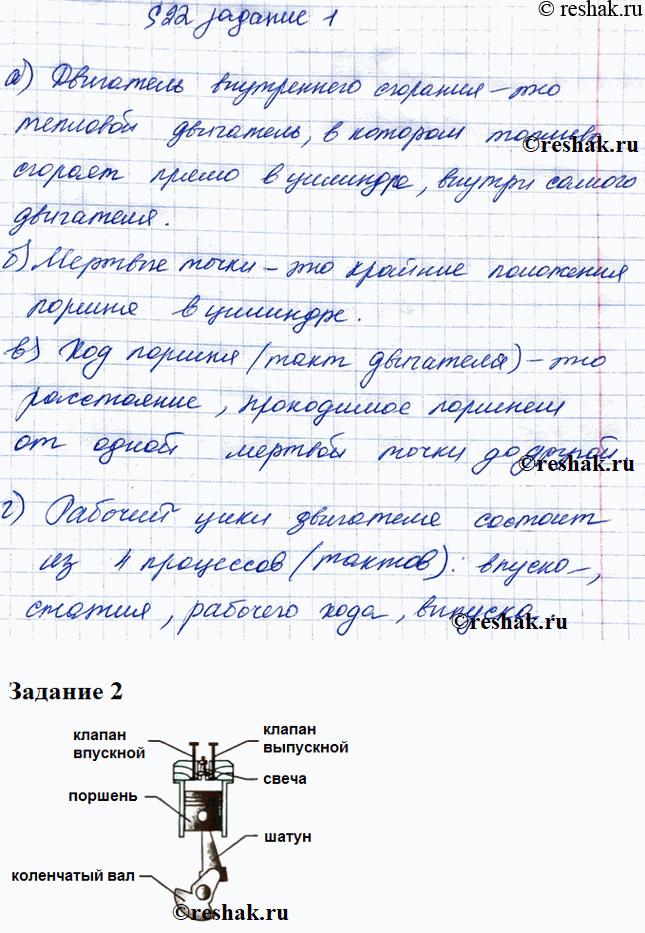 ©reshak.ru
§22 задание 1
а) Двигатель внутреннего сгорания – это
тепловой двигатель, в котором топливо
©reshak.ru
сгорает прямо в цилиндре, внутри самого
двигателя.
б) Мертвые точки – это крайние положения
поршня в цилиндре.
в) Ход поршня (такт двигателя) – это
расстояние, проходимое поршнем
от одной мертвой точки до другой
©reshak.ru
г) Рабочий цикл двигателя состоит
из 4 процессов (тактов): впуска –,
сжатия, рабочего хода, выпуска
©reshak.ru
Задание 2
клапан впускной
клапан выпускной
свеча
поршень
шатун
коленчатый вал
©reshak.ru